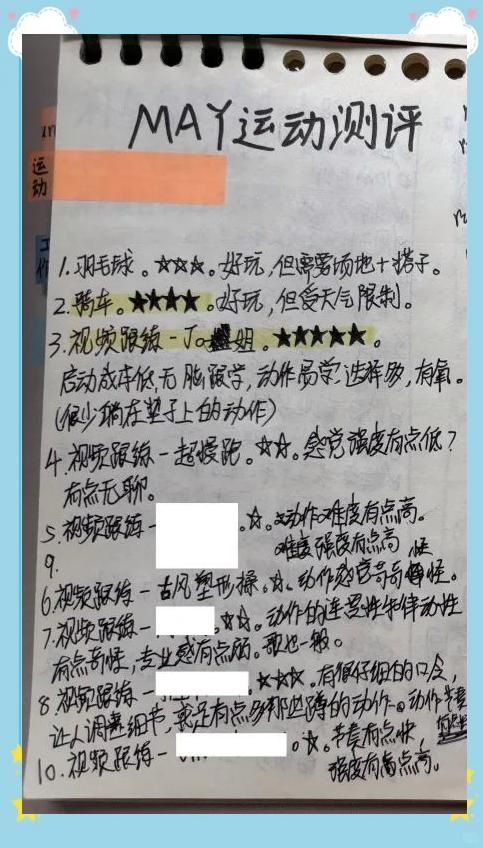 MAY运动测评
运动
工作
1.羽毛球。★★★。好玩,但需要场地+搭子。
2.骑车。★★★★。好玩,但受天气限制。
3.视频跟练-Jo姐。★★★★★。
启动成本低,无脑跟学,动作易学,选择多,有氧。
(很少躺在垫子上的动作)
4.视频跟练-超慢跑。★★。感觉强度有点低?
有点无聊。
5.视频跟练-。★。动作难度有点高。
难度强度有点高
9.
6.视频跟练-古风塑形操。★。动作感觉奇奇怪怪。
7.视频跟练-。★★。动作的连贯性和律动性
有点奇怪,专业感有点弱。歌也一般。
8.视频跟练-。★★★。有很仔细的口令,
让人调整细节,就是有点多那些蹲的动作。动作节奏
10.视频跟练-。★。节奏有点快,
强度有点高。